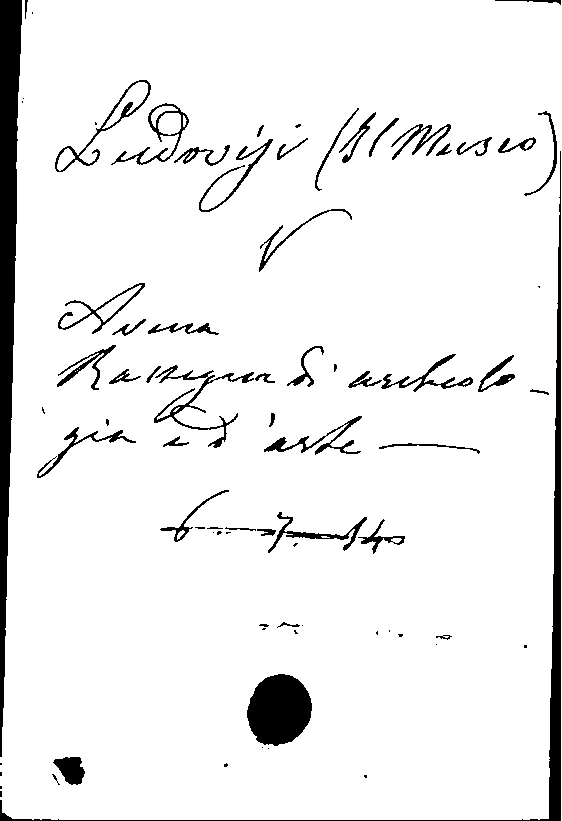 Ludovisi (Il Museo)
V
Avena
Rassegna di archeolo-
gia e d'arte —
6. 7. 140